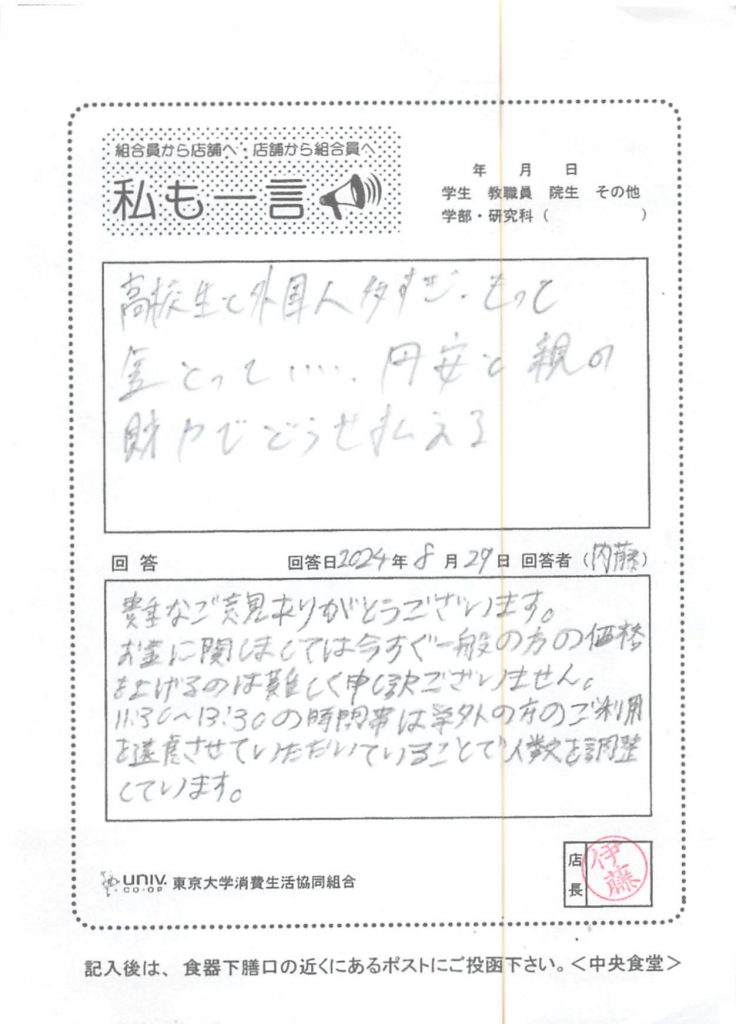 組合員から店舗へ・店舗から組合員へ
私も一言
年 月 日
学生 教職員 院生 その他
学部・研究科（ ）
高校生と外国人多すぎ。もっと
金とっていい。円安と親の
財力でどうせ払える
回答 回答日2024年8月29日 回答者（内藤）
貴重なご意見ありがとうございます。
お金に関しましては今すぐ一般の方の価格
を上げるのは難しく申し訳ございません。
11:30〜13:30の時間帯は学外の方のご利用
を遠慮させていただいていることで人数を調整
しています。
UNIV. CO-OP 東京大学消費生活協同組合
店長 伊藤
記入後は、食器下膳口の近くにあるポストにご投函下さい。＜中央食堂＞